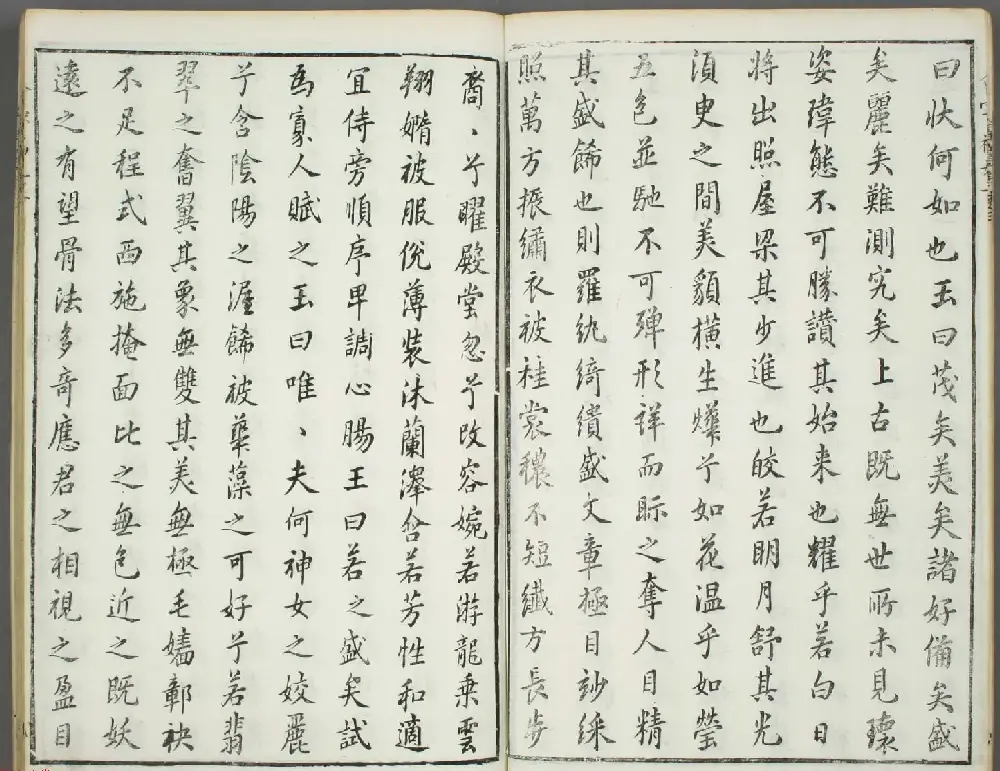 曰狀何如也玉曰茂矣美矣諸好備矣盛
矣麗矣難測究矣上古既無世所未見瓌
姿瑋態不可勝讚其始来也耀乎若白日
將出照屋梁其少進也皎若明月舒其光
須臾之間美貌橫生燁兮如花温乎如瑩
五色並馳不可殫形詳而眎之奪人目精
其盛餙也則羅紈綺繢盛文章極目玅綵
照萬方振繡衣被袿裳穠不短纖方長步
裔、兮曜殿堂忽兮改容婉若游龍乗雲
翔嫷被服侻薄裝沐蘭澤含若芳性和適
宜侍旁順序卑調心腸王曰若之盛矣試
為寡人賦之玉曰唯、夫何神女之姣麗
兮含陰陽之渥餙被華藻之可好兮若翡
翠之奮翼其象無雙其美無極毛嬙鄣袂
不足程式西施掩面比之無色近之既妖
遠之有望骨法多奇應君之相視之盈目